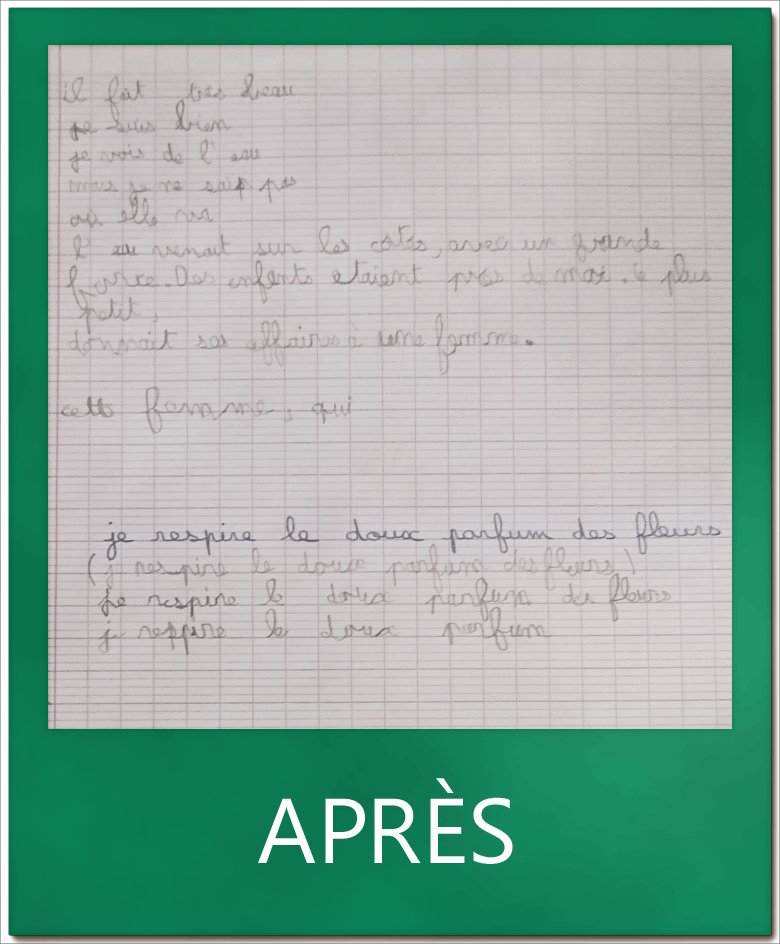 il fait très beau
je suis bien
je vois de l'eau
mais je ne sais pas
où elle va
l'eau venait sur les côtés, avec un grande
force. Des enfants etaient près de moi. le plus
petit,
donnait ses affaires à une femme.
cette femme, qui
je respire le doux parfum des fleurs
(j respire le doux parfum des fleurs)
je respire le doux parfum des fleurs
j respire le doux parfum
APRÈS